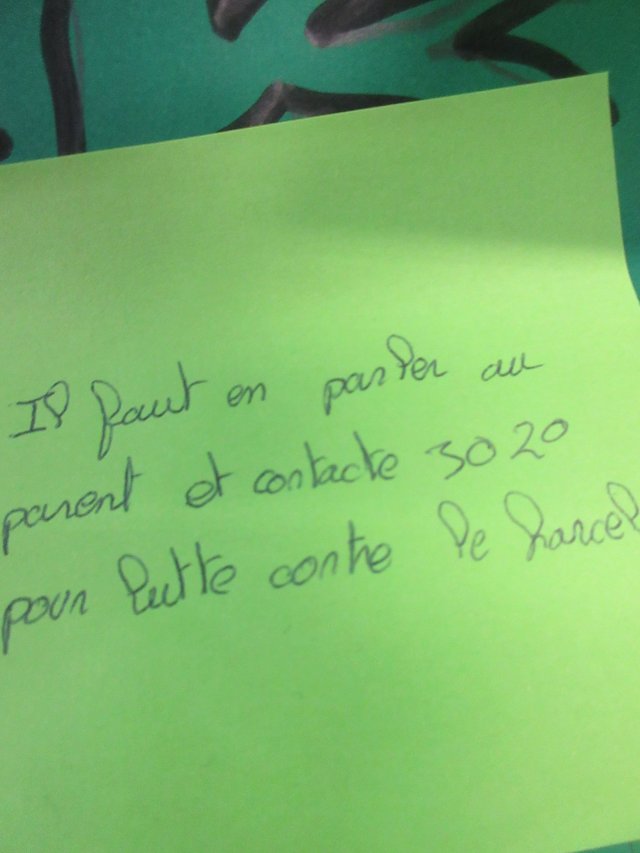 Il faut en parler au
parent et contacte 3020
pour lutte contre le harcel